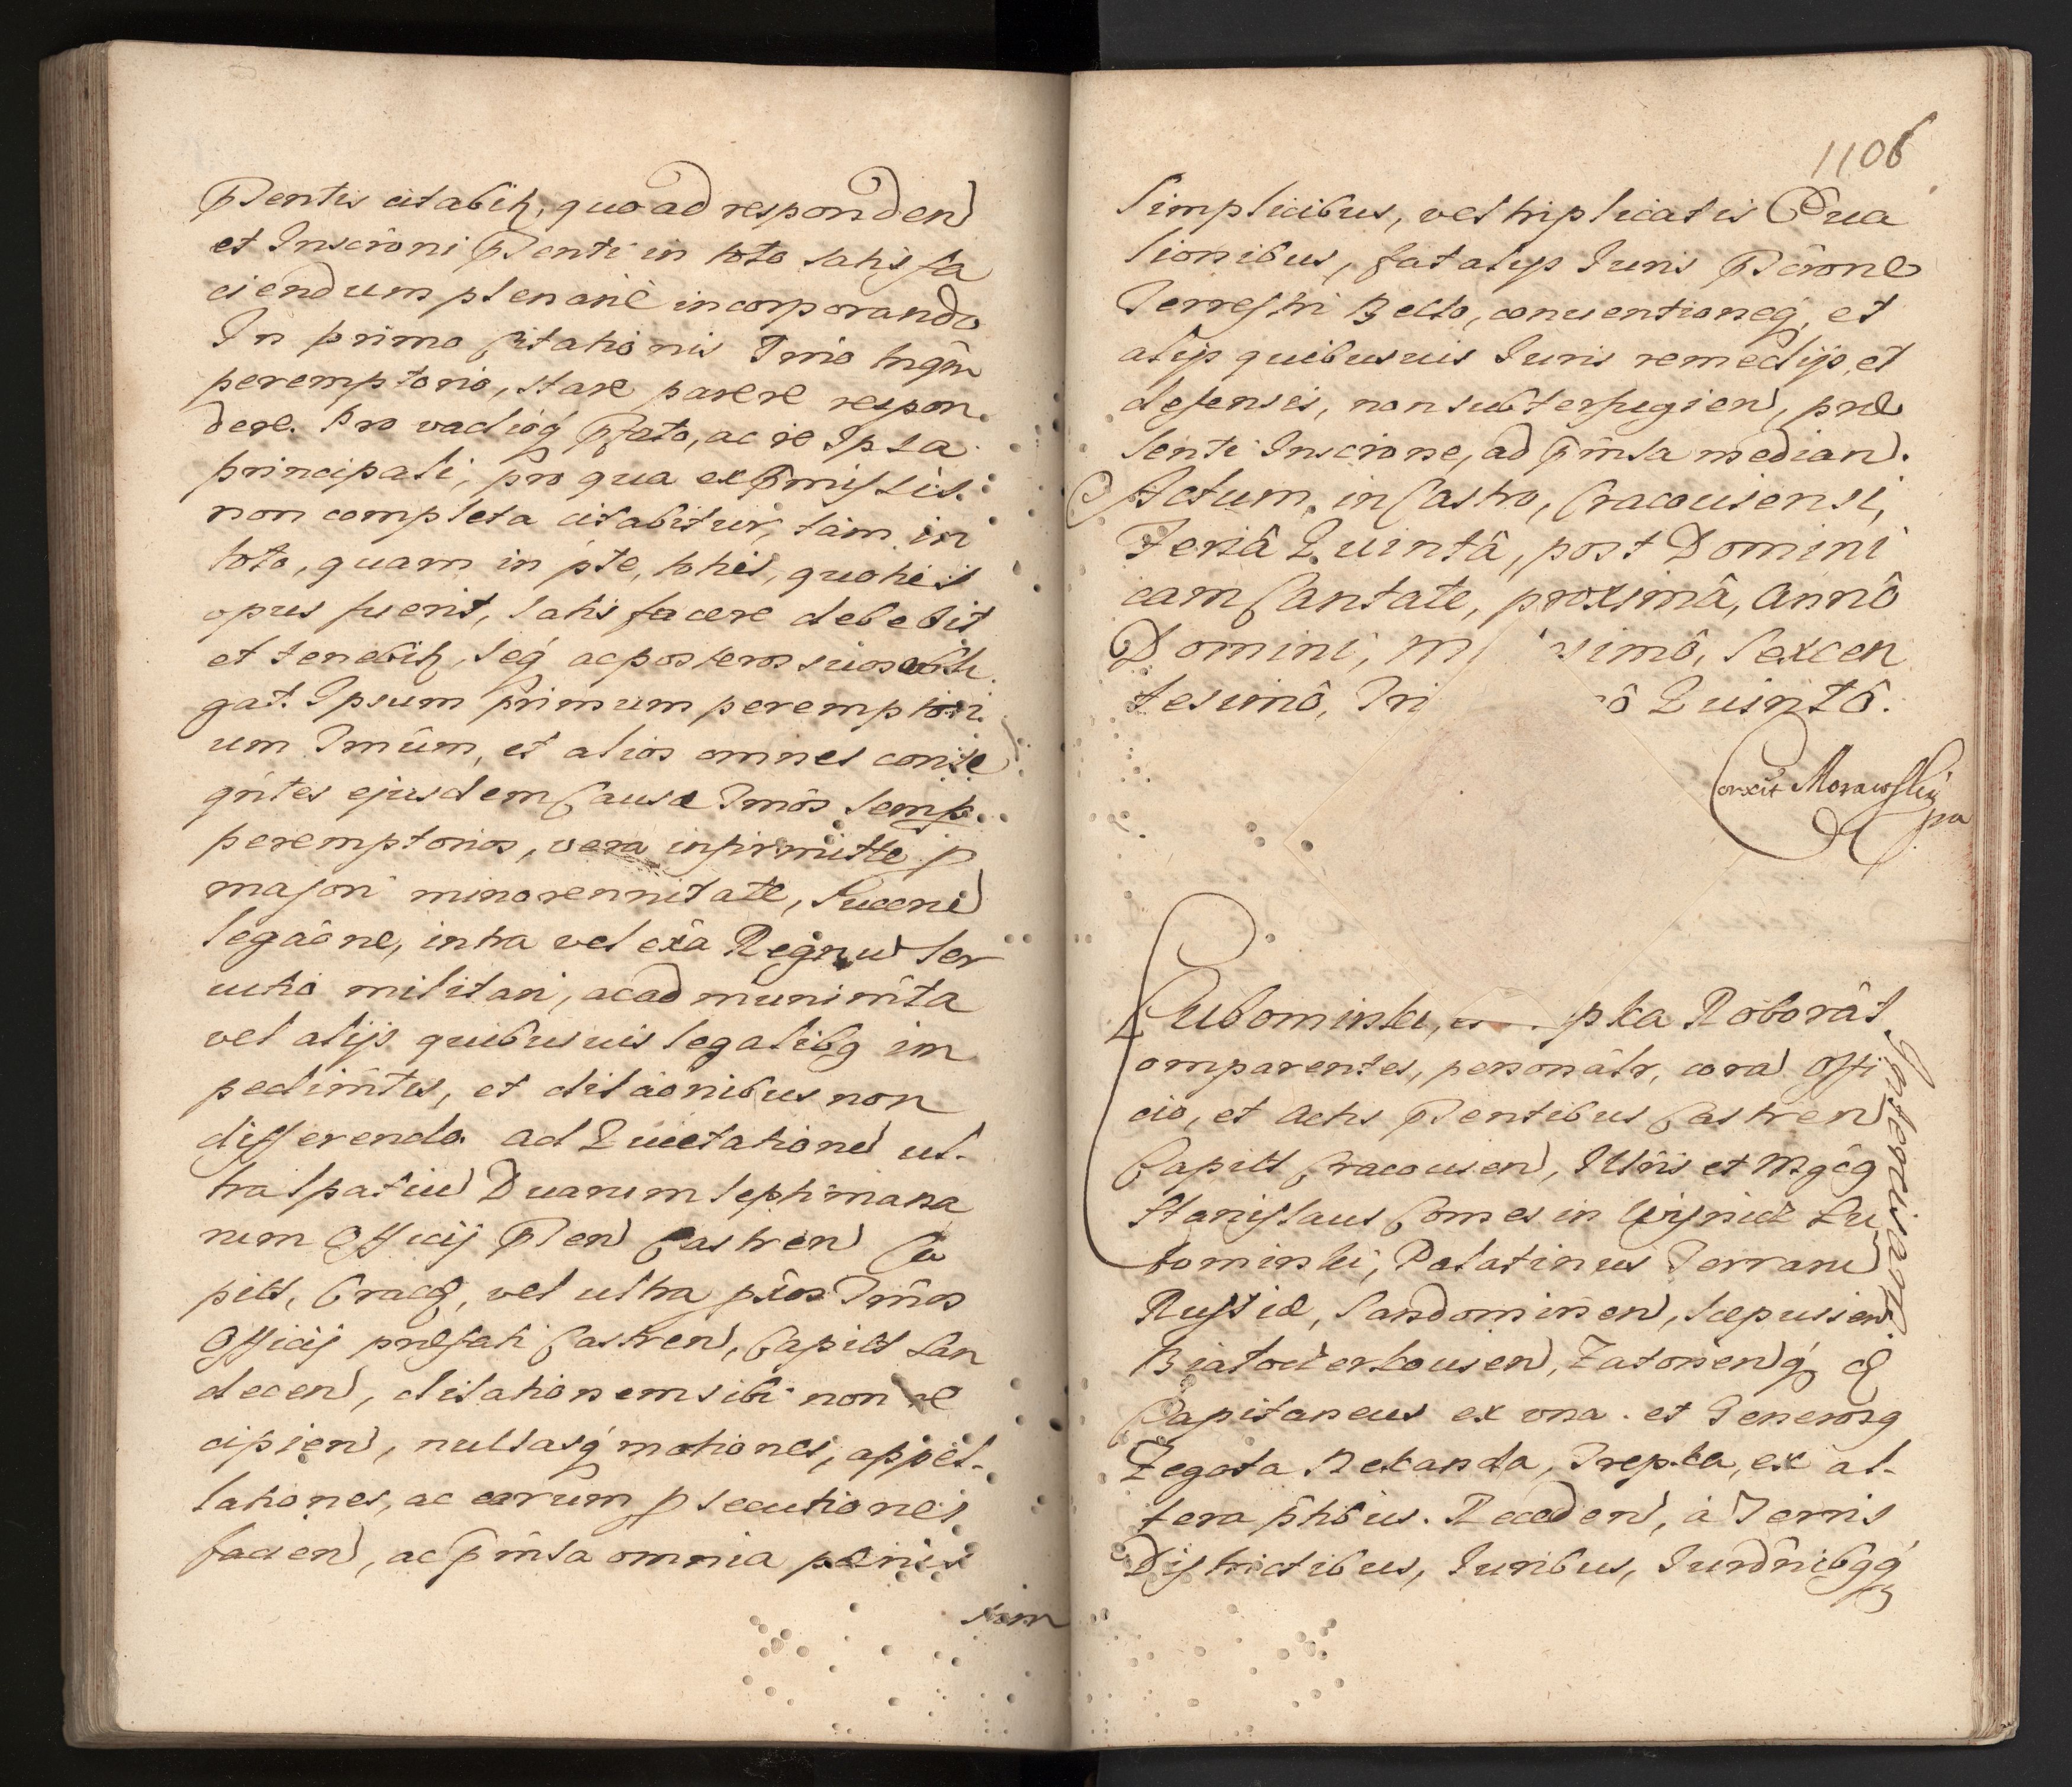 Ptentis citabitur, quo ad responden
et Inscrōni Ptenti in toto satisfa
ciendum plenariè incorporando
In primo Citationis Tmīo tnqm̄
peremptorio, stare parere respon
dere. Pro vadioq́ Pfato, ac re Ipsa
principali, pro qua ex Pmissis
non completa citabitur, tàm in
toto, quam in pte, toties, quoties
opus fuerit, satisfacere debebit
et tenebitur, seq́ ac posteros suos obli
gat. Ipsum primum peremptori
um Tmīūm, et alios omnes conse
qn̄tes ejusdem Causæ Tmīōs semp
peremptorios, vera infirmitte p
majori minorennitate, Succne
legāōne, intra vel exā Regnu ser
uitio militari, ac ad munim̄ta
vel alijs quibusuis legalibq im
pedim̄tis, et dilāōnibus non
differendo. Ad Quietatione ul-
tra spatiu Duarum septimana
rum Officij Pten Castren Ca
pitl, Crac&, vel ultra p̄xos Tmōs
Officij præfati Castren, Capitl San
decen, dilationem sibi non re
cipien, nullasq́ motiones, appel-
lationes, ac earum psecutiones
facien, ac Pm̄sa omnia pænis
1106
simplicibus, vel triplicatis Eua
sionibus, fatalijs Iuris Pscrōne
Terrestri Bello, conuentioneq́, et
alijs quibusuis Iuris remedijs, et
defensis, non subterfugien, præ
senti Inscrōne, ad Pm̄sa median.
Actum, in Castro, Cracouiensi,
Feriâ Quintâ, post Domini
cam Cantate, proximâ, Annô
Domini, M simô, Sexcen
tesimô, Tri ô Quintô.
Corxit Morawsky
mp
Lubomirski, et pka Roborāt
Interciam.
omparentes, personālr, cora Offi
cio, et Actis Ptentibus Castren
Capitl Cracouien, Illris et Mgcq
Stanislaus Comes in Wisnicz Lu
bomirski, Palatinus Terraru
Russiæ, Sandomirien, Scepusien
Białocerkouien, Zatorienq́ &
Capitaneus ex vna. et Generosq
Zegota Nekanda, Trepka, ex al-
tera ptibus. Receden, à Terris
Districtibus, Iuribus, Iurdnibqq́